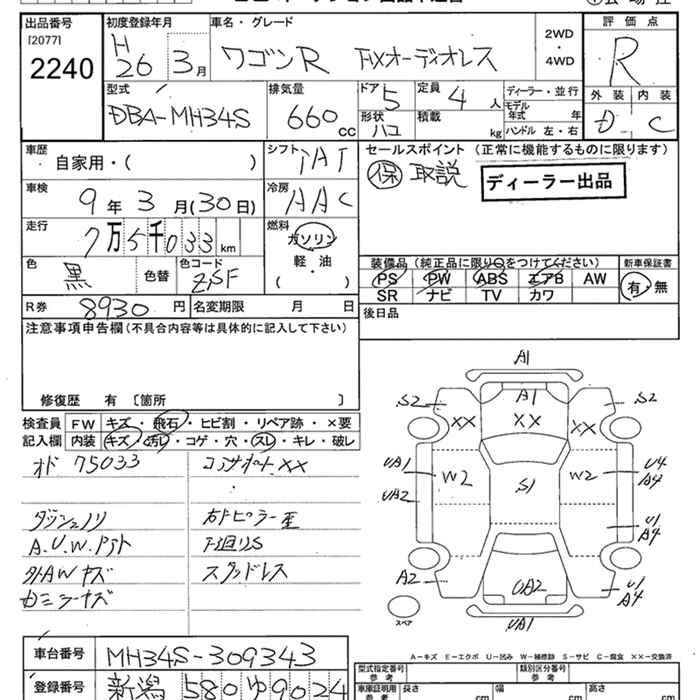 出品番号
[2077]
2240
初度登録年月
H
26 3月
車名・グレード
ワゴンR FXオーディオレス
2WD
・
4WD
評価点
R
外装 内装
D C
型式
DBA-MH34S
排気量
660cc
ドア 5
定員 4人
形状 ハコ
積載 kg
ディーラー・並行
モデル
年式 年
ハンドル 左・右
車歴
自家用・( )
シフト
冷房 AAC
車検
9年3月(30日)
走行
7万5千033km
燃料
ガソリン
軽・油
( )
色
黒 色替
色コード
ZJSF
R券 8930円
名変期限 月 日
セールスポイント (正常に機能するものに限ります)
保 取説
ディーラー出品
装備品 (純正品に限り○をつけてください)
PS PW ABS エアB AW
SR ナビ TV カワ
新車保証書
有・無
後日品
注意事項申告欄 (不具合内容等は具体的に記入して下さい)
修復歴 有 〔箇所 〕
検査員
記入欄
FW キズ・飛石・ヒビ割・リペア跡・×要
内装 キズ・汚レ・コゲ・穴・スレ・キレ・破レ
オド 75033
コアサポートXX
右Fピラー歪
スタッドレス
A1
S2 XX A1 XX XX S2
UA1 W2 S1 W2 U4 A4
UA2 U1 A4
A2 UA2 U1 A4
UA1
スペア
A-キズ E-エクボ U-凹み W-補修跡 S-サビ C-腐食 ××-交換済
車台番号 MH34S-309343
登録番号 新潟 580 ゆ 9024
型式指定番号
参考
類別区分番号
参考
車庫証明用
参考
長さ cm
幅 cm
高さ cm